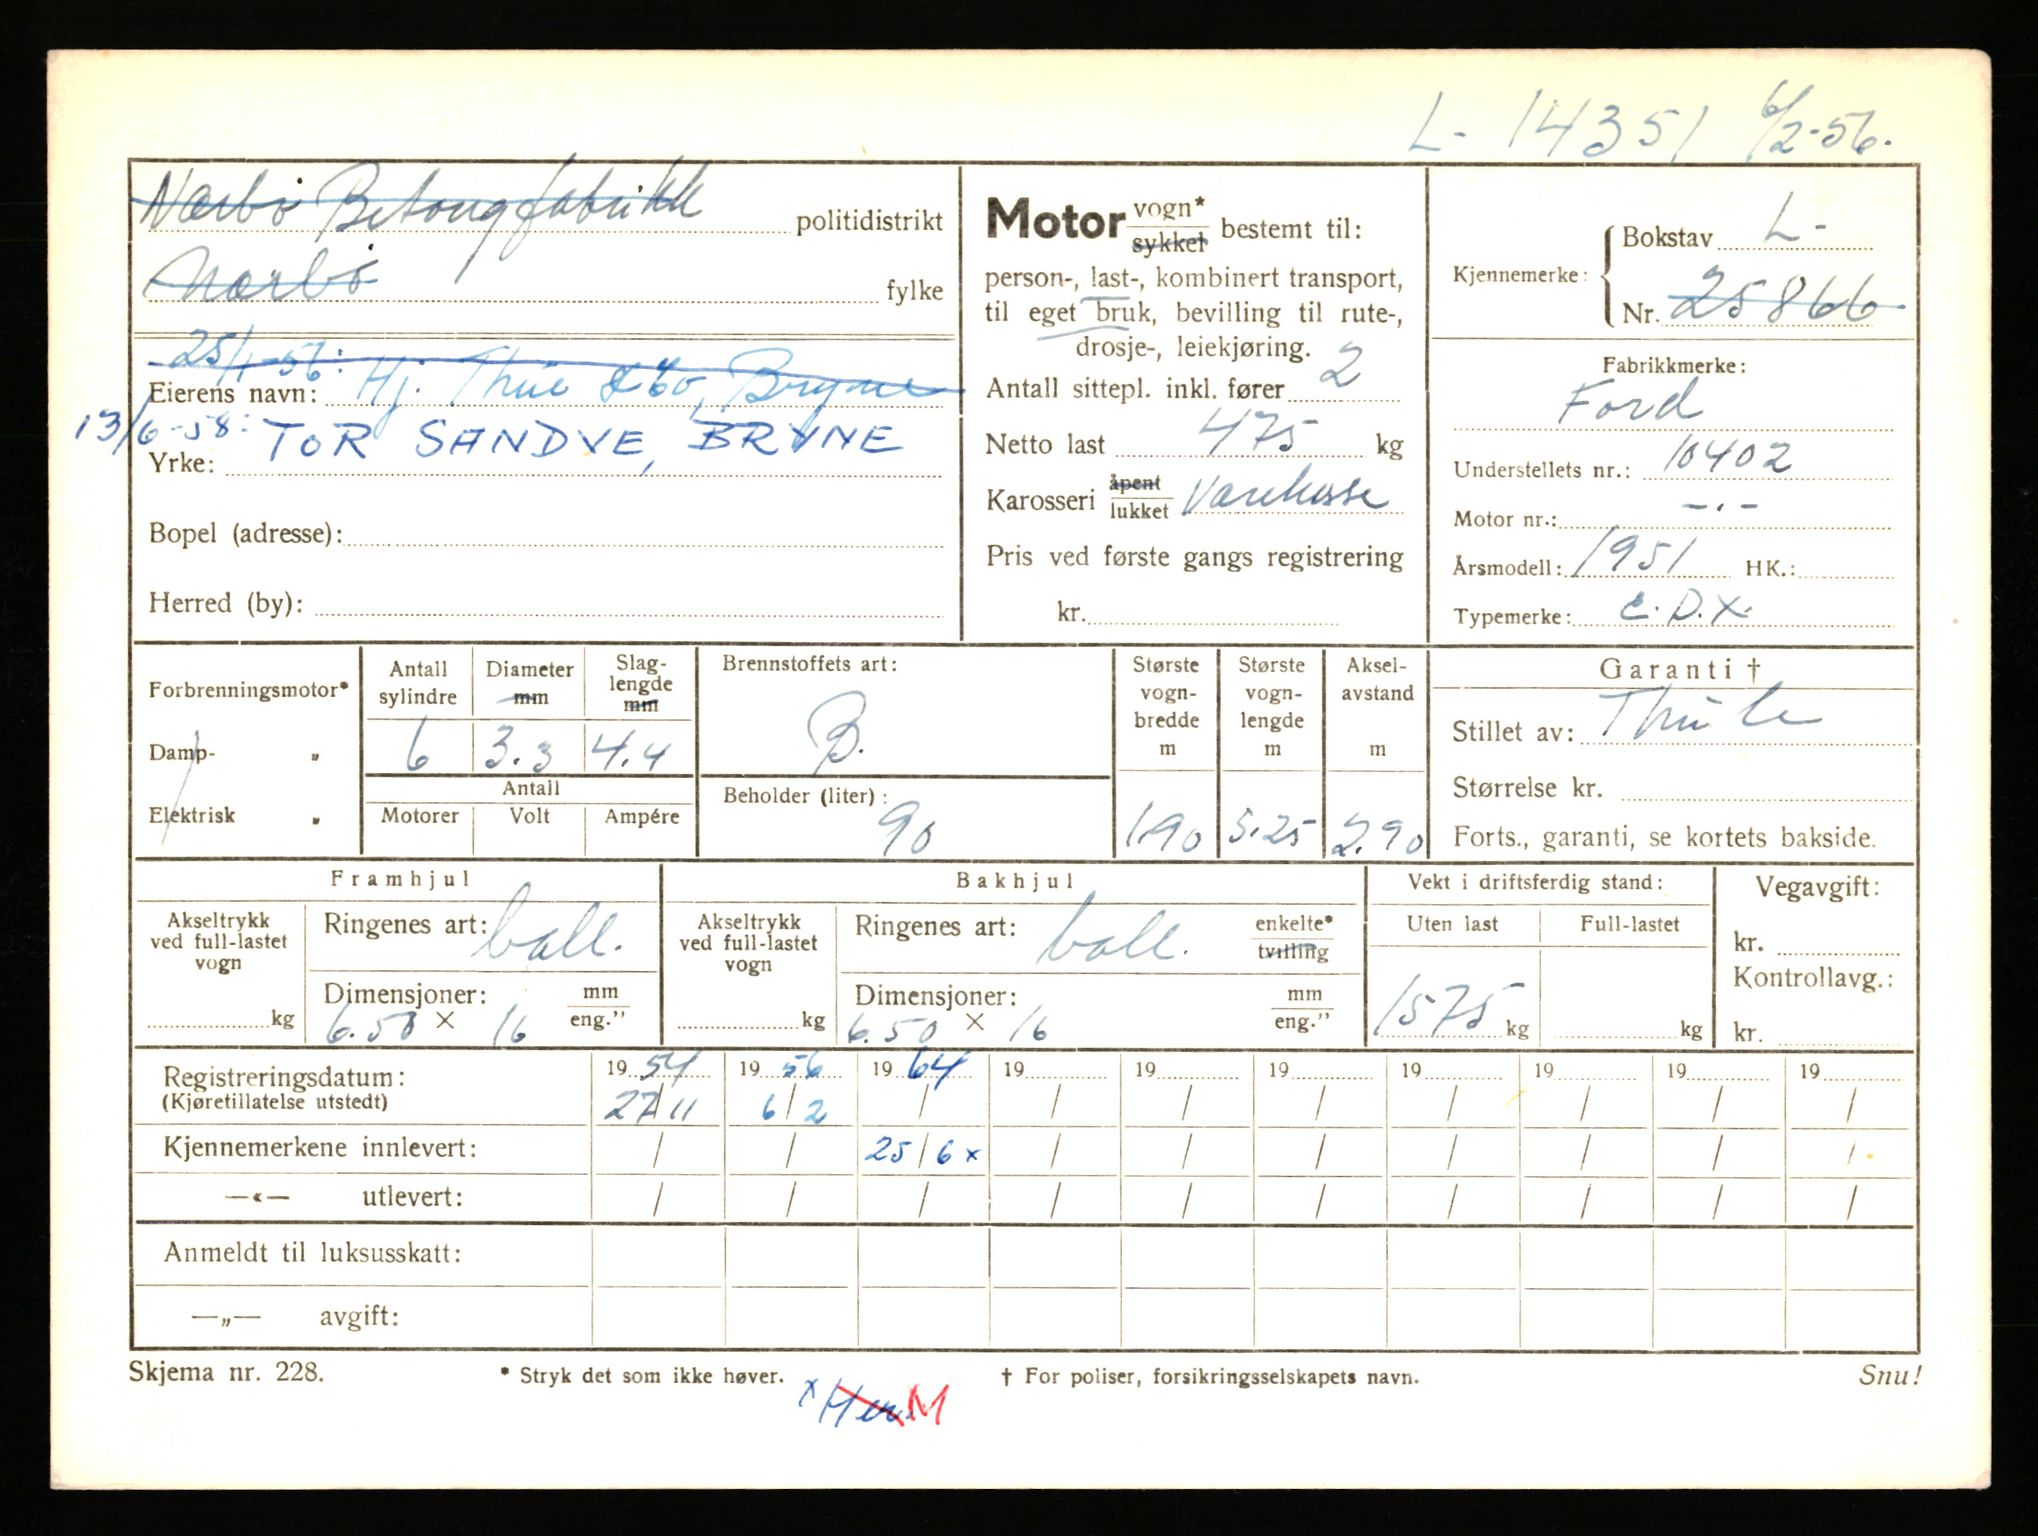 L- 14351 6/2-56.
Nærbø Betongfabrikk politidistrikt
Nærbø fylke
25/1-56:
Eierens navn: Hj. Thue & Co, Bryne
13/6-58: TOR SANDVE, BRYNE
Yrke:
Bopel (adresse):
Herred (by):
Motor vogn* sykkel bestemt til:
person-, last-, kombinert transport,
til eget bruk, bevilling til rute-,
drosje-, leiekjøring.
Antall sittepl. inkl. fører 2
Netto last 475 kg
Karosseri åpent lukket Varekasse
Pris ved første gangs registrering
kr.
Kjennemerke: Bokstav L-
Nr. 25866
Fabrikkmerke:
Ford
Understellets nr.: 10402
Motor nr.: -.-
Årsmodell: 1951 HK.:
Typemerke: E.D.X.
Forbrenningsmotor*
Damp- „
Elektrisk „
Antall sylindre
Diameter mm
Slag- lengde mm
6 3.3 4.4
Antall
Motorer Volt Ampére
Brennstoffets art:
B.
Beholder (liter):
90
Største vogn- bredde m
1.90
Største vogn- lengde m
5.25
Aksel- avstand m
2.90
Garanti †
Stillet av: Thule
Størrelse kr.
Forts., garanti, se kortets bakside.
Framhjul
Akseltrykk ved full-lastet vogn
kg
Ringenes art: ball.
Dimensjoner: mm eng."
6.50 × 16
Bakhjul
Akseltrykk ved full-lastet vogn
kg
Ringenes art: ball. enkelte* tvilling
Dimensjoner: mm eng."
6.50 × 16
Vekt i driftsferdig stand:
Uten last Full-lastet
1575 kg kg
Vegavgift:
kr.
Kontrollavg.:
kr.
Registreringsdatum: 19 54 19 56 19 64 19 19 19 19 19 19 19
(Kjøretillatelse utstedt) 27/11 6/2 / / / / / / / /
Kjennemerkene innlevert: / / 25/6 x / / / / / / /
—«— utlevert: / / / / / / / / / /
Anmeldt til luksusskatt:
—„— avgift:
Skjema nr. 228. * Stryk det som ikke høver. † For poliser, forsikringsselskapets navn. Snu!
x M